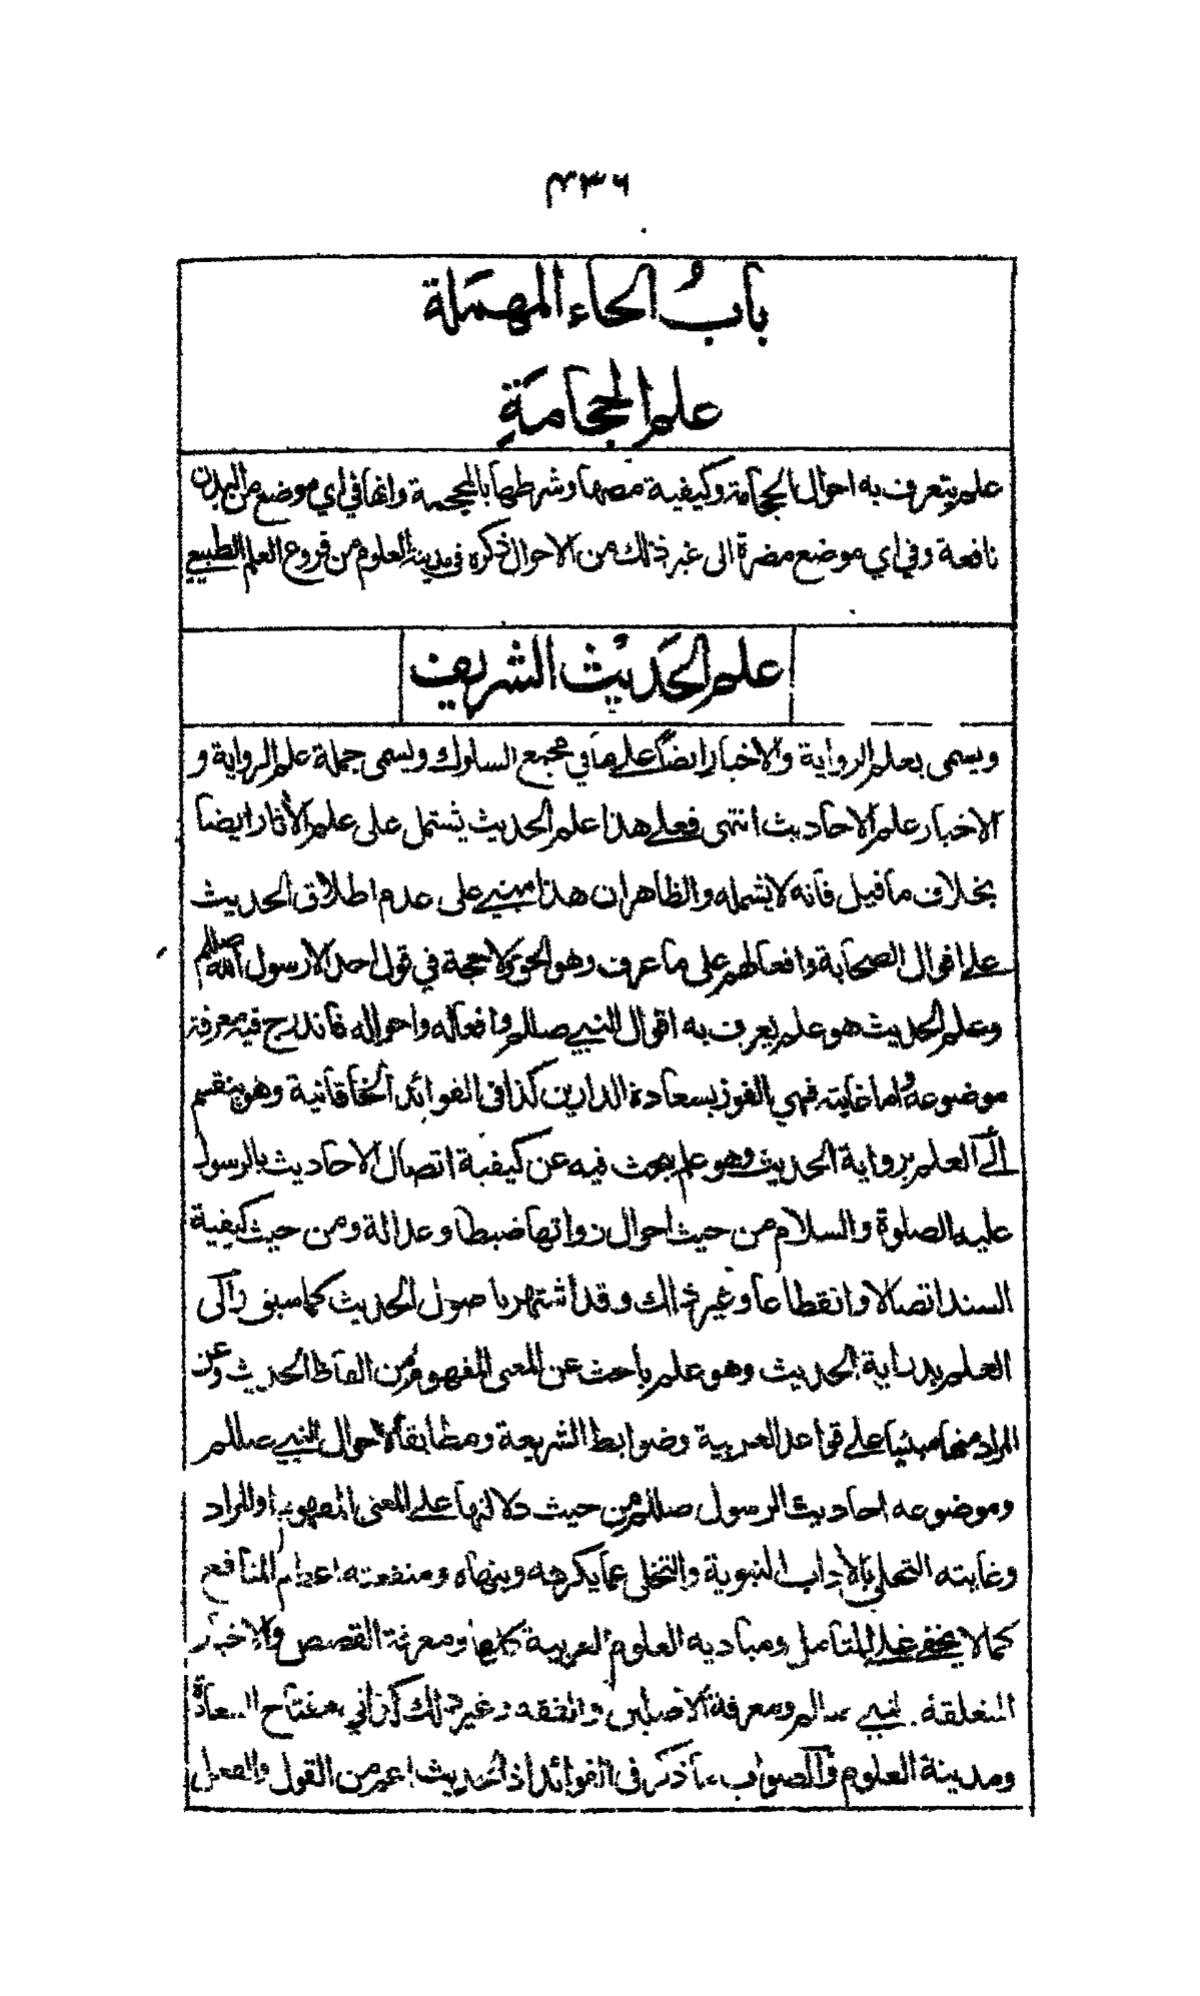 ٤٣٦
باب الحاء المهملة
علم الحجامة
علم يتعرف به احوال الحجامة وكيفية مصها وشرطها بالمحجمة وانها في اي موضع من البدن
نافعة وفي اي موضع مضرة الى غير ذلك من الاحوال ذكره في مدينة العلوم من فروع العلم الطبيعي
علم الحديث الشريف
ويسمى بعلم الرواية والاخبار ايضا على ما في مجمع السلوك ويسمى جملة علم الرواية و
الاخبار علم الاحاديث انتهى فعلى هذا علم الحديث يشتمل على علم الأثار ايضا
بخلاف ما قيل فانه لا يشمله والظاهر ان هذا مبني على عدم اطلاق الحديث
على اقوال الصحابة وافعالهم على ما عرف وهو الحق ولا حجة في قول احد الا رسول الله صللم
وعلم الحديث هو علم يعرف به اقوال النبي صللم وافعاله واحواله فاندرج فيه معرفة
موضوعه واما غايته فهي الفوز بسعادة الدارين كذا في الفوائد الخاقانية وهو ينقسم
الى العلم برواية الحديث وهو علم يبحث فيه عن كيفية اتصال الاحاديث بالرسول
عليه الصلوة والسلام من حيث احوال رواتها ضبطا وعدالة ومن حيث كيفية
السند اتصالا وانقطاعا وغير ذلك وقد اشتهر باصول الحديث كما سبق والى
العلم بدراية الحديث وهو علم باحث عن المعنى المفهوم من الفاظ الحديث وعن
المراد منها مبنيا على قواعد العربية وضوابط الشريعة ومطابقا لاحوال النبي صللم
وموضوعه احاديث الرسول صللم من حيث دلالتها على المعنى المفهوم او المراد
وغايته التحلي بالآداب النبوية والتخلي عما يكرهه وينهاه ومنفعته اعظم المنافع
كما لا يخفى على المتأمل ومباديه العلوم العربية كلها ومعرفة القصص والاخبار
المتعلقة بالنبي صللم ومعرفة الاصلين والفقه وغير ذلك كذا في مفتاح السعادة
ومدينة العلوم والصواب ما ذكر في الفوائد اذ الحديث اعم من القول والفعل